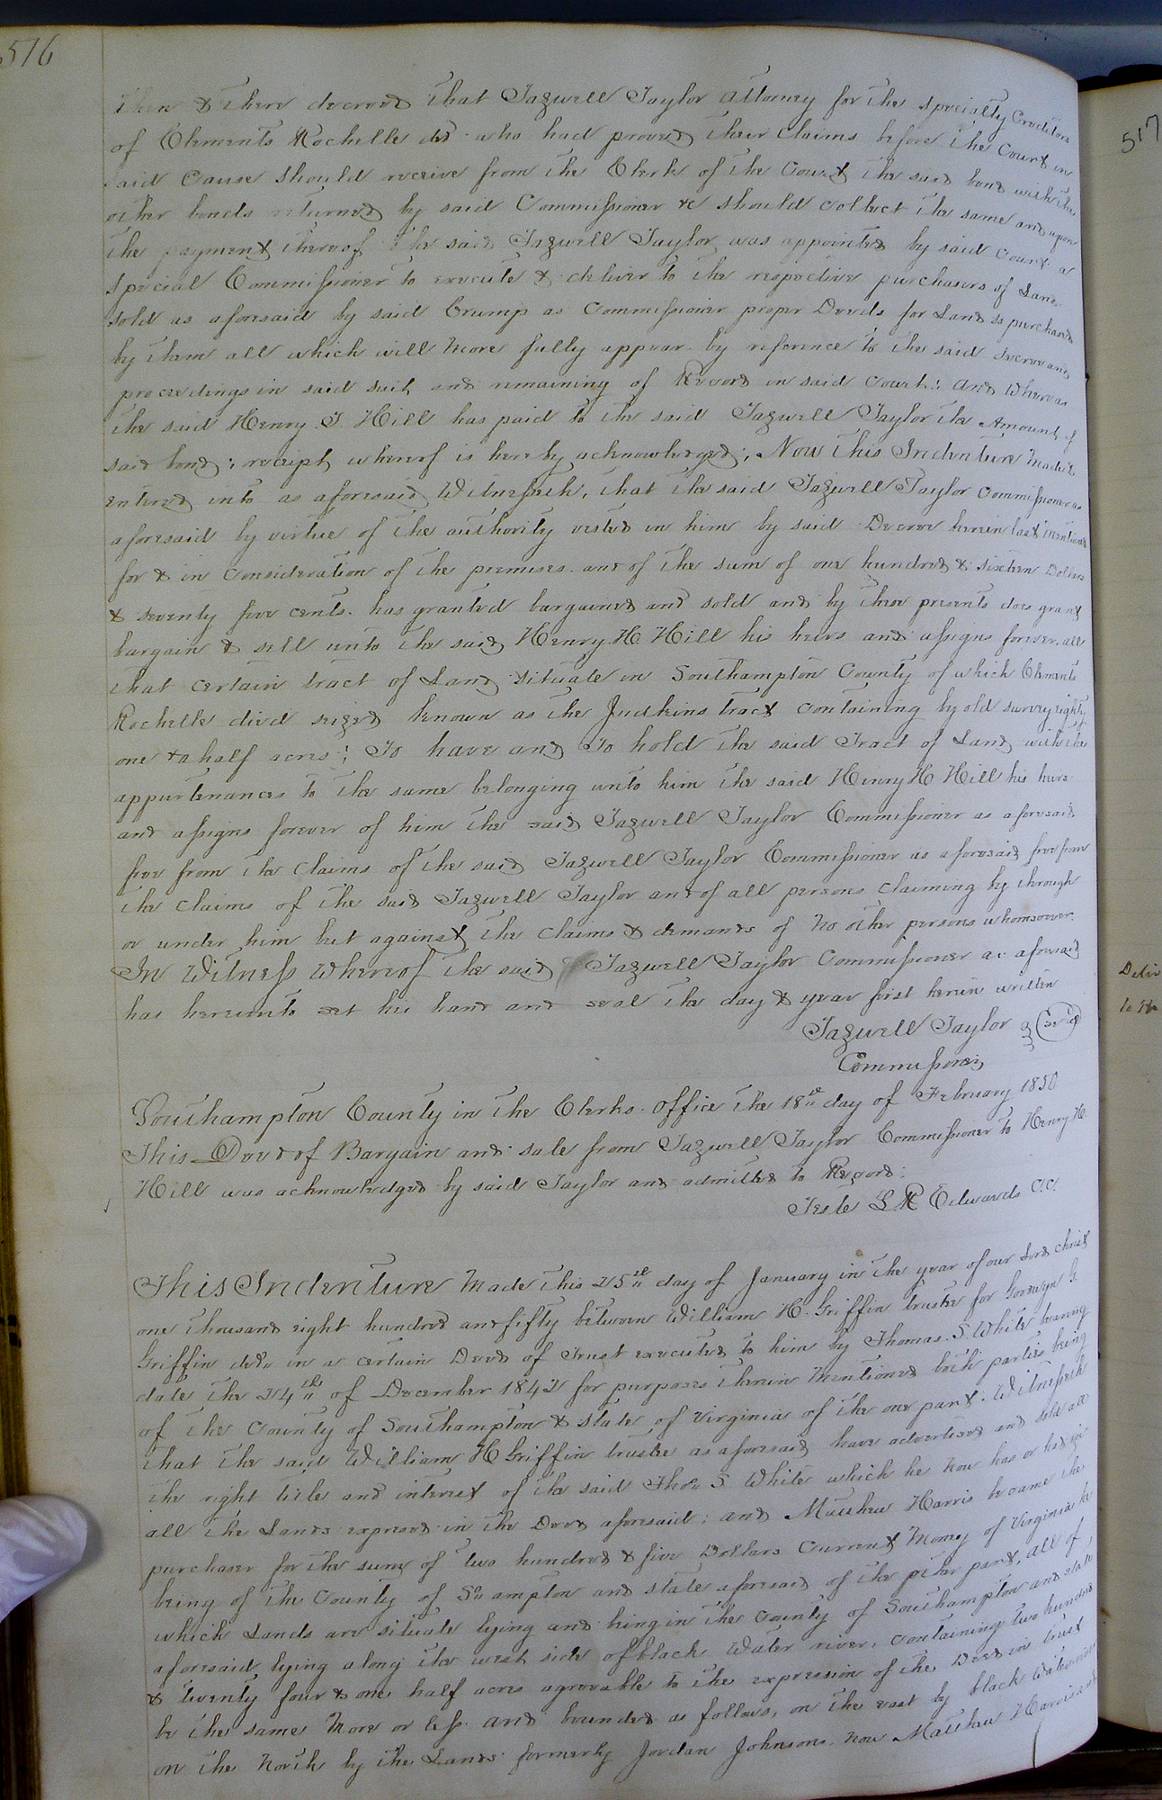 516
then & there decreed that Tazwell Taylor Attorney for the specialty Creditors
of Clements Rochelle decd who had proved their Claims before the Court in
said Cause should receive from the Clerk of the Court the said bond with the
other bonds returned by said Commissioner &c should collect the same and upon
the payment thereof the said Tazwell Taylor was appointed by said Court a
special Commissioner to execute & deliver to the respective purchasers of Land
sold as aforesaid by said Crump as Commissioner proper Deeds for Land so purchased
by them all which will more fully appear by reference to the said decree and
proceedings in said suit, and remaining of Record in said Court: And Whereas
the said Henry H Hill has paid to the said Tazwell Taylor the Amount of
said bond; receipt whereof is hereby acknowledged; Now This Indenture made &
entered into as aforesaid, Witnesseth, that the said Tazwell Taylor Commissioner as
aforesaid by virtue of the authority vested in him by said Decree herein last mentioned
for & in Consideration of the premises and of the sum of one hundred & sixteen Dollars
& seventy five cents. has granted bargained and sold and by these presents does grant
bargain & sell unto the said Henry H Hill his heirs and assigns forever. all
that certain tract of Land situate in Southampton County of which Clements
Rochelle died seized known as the Judkins tract Containing by old survey eighty
one & a half acres; To have and To hold the said Tract of Land with the
appurtenances to the same belonging unto him the said Henry H Hill his heirs
and assigns forever of him the said Tazwell Taylor Commissioner as aforesaid
free from the Claims of the said Tazwell Taylor Commissioner as aforesaid free from
the claims of the said Tazwell Taylor and of all persons claiming by through
or under him but against the claims & demands of no other persons whomsoever.
In Witness Whereof the said Tazwell Taylor Commissioner as aforesaid
has hereunto set his hand and seal the day & year first herein written
Tazwell Taylor (Seal)
Commissioner
Southampton County in the Clerks Office the 18th day of February 1850
This Deed of Bargain and sale from Tazwell Taylor Commissioner to Henry H.
Hill was acknowledged by said Taylor and admitted to Record:
Teste L R Edwards C.C.
This Indenture Made this 25th day of January in the year of our Lord Christ
one thousand eight hundred and fifty between William H. Griffin trustee for Goodwyn G
Griffin decd in a certain Deed of Trust executed to him by Thomas. S. White bearing
date the 24th of December 1842 for purposes therein Mentioned both parties being
of the County of Southampton & state of Virginia of the one part. Witnesseth
that the said William H Griffin trustee as aforesaid have advertised and sold all
the right title and interest of the said Thos S White which he now has or had in
all the Lands expressed in the Deed aforesaid; and Matthew Harris became the
purchaser for the sum of two hundred & five Dollars Current Money of Virginia he
being of the County of So ampton and state aforesaid of the other part, all of
which Lands are situate lying and being in the County of Southampton and state
aforesaid lying along the west side of black water river, containing two hundred
& twenty four & one half acres agreeable to the expression of the Deed in trust
be the same more or less and bounded as follows, on the east by black Water river
on the North by the Lands formerly Jordan Johnsons. now Matthew Harris
517
Deliv
to